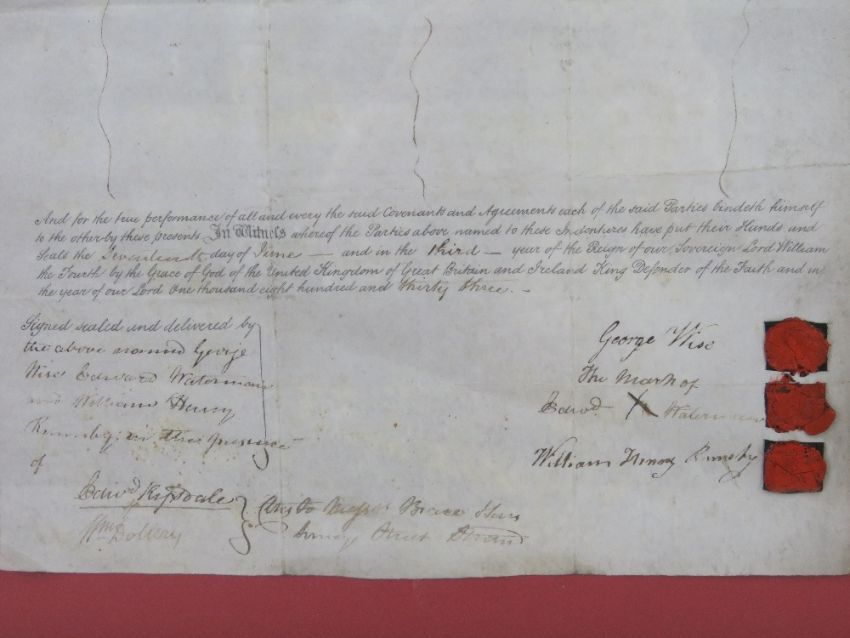 And for the true performance of all and every the said Covenants and Agreements each of the said Parties bindeth himself
to the other by these presents In Witness whereof the Parties above named to these Indentures have put their Hands and
Seals the Seventeenth day of June — and in the third — year of the Reign of our Sovereign Lord William
the Fourth by the Grace of God of the United Kingdom of Great Britain and Ireland King Defender of the Faith and in
the year of our Lord One thousand eight hundred and thirty three. —
Signed sealed and delivered by
the above named George
Wise Edward Waterman
and William Henry
in the presence
of
George Wise
The Mark of
Edwd X Waterman
William Henry Rumsby
Edwd
Wm
Clks to Messrs
Surrey Street Strand